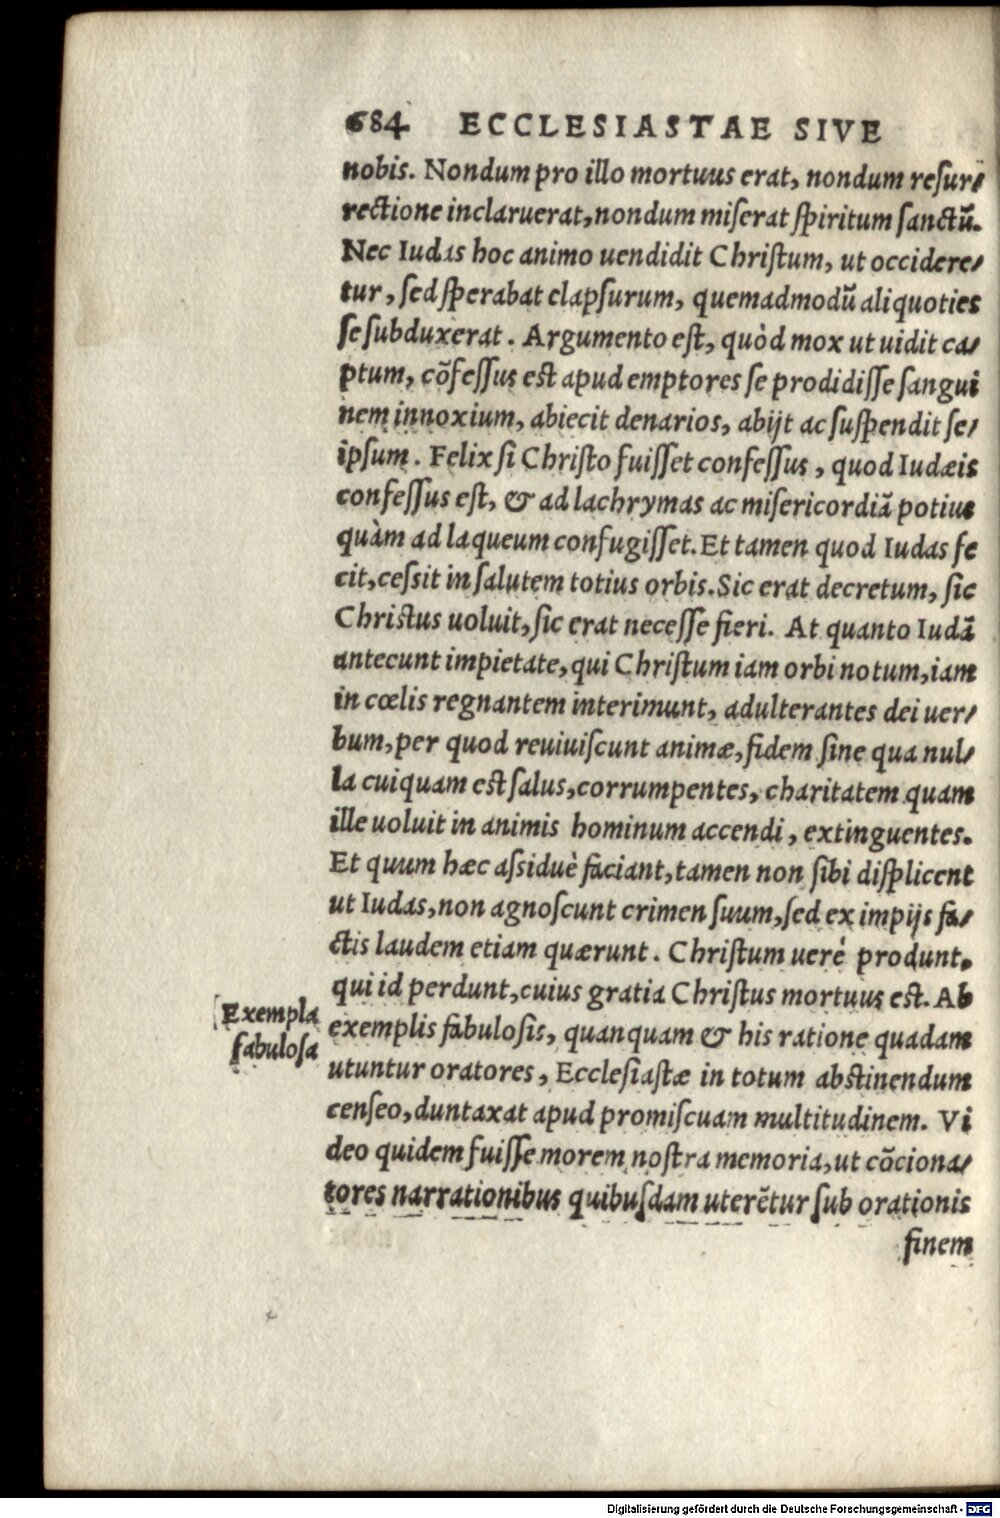 684 ECCLESIASTAE SIVE
nobis. Nondum pro illo mortuus erat, nondum reſur/
rectione inclaruerat, nondum miſerat ſpiritum ſanctū.
Nec Iudas hoc animo uendidit Chriſtum, ut occidere/
tur, ſed ſperabat elapſurum, quemadmodū aliquoties
ſe ſubduxerat. Argumento eſt, quòd mox ut uidit ca/
ptum, cõfeſſus eſt apud emptores ſe prodidiſſe ſangui
nem innoxium, abiecit denarios, abijt ac ſuſpendit ſe/
ipſum. Felix ſi Chriſto fuiſſet confeſſus, quod Iudæis
confeſſus eſt, & ad lachrymas ac miſericordiã potius
quàm ad laqueum confugiſſet. Et tamen quod Iudas fe
cit, ceſsit in ſalutem totius orbis. Sic erat decretum, ſic
Chriſtus uoluit, ſic erat neceſſe fieri. At quanto Iudã
antecunt impietate, qui Chriſtum iam orbi notum, iam
in cœlis regnantem interimunt, adulterantes dei uer/
bum, per quod reuiuiſcunt animæ, fidem ſine qua nul/
la cuiquam eſt ſalus, corrumpentes, charitatem quam
ille uoluit in animis hominum accendi, extinguentes.
Et quum hæc aſsiduè faciant, tamen non ſibi diſplicent
ut Iudas, non agnoſcunt crimen ſuum, ſed ex impijs fa/
ctis laudem etiam quærunt. Chriſtum uerè produnt,
qui id perdunt, cuius gratia Chriſtus mortuus eſt. Ab
Exempla
fabuloſa
exemplis fabuloſis, quanquam & his ratione quadam
utuntur oratores, Eccleſiaſtæ in totum abſtinendum
cenſeo, duntaxat apud promiſcuam multitudinem. Vi
deo quidem fuiſſe morem noſtra memoria, ut cõciona/
tores narrationibus quibuſdam uterẽtur ſub orationis
finem
Digitalisierung gefördert durch die Deutsche Forschungsgemeinschaft - DFG